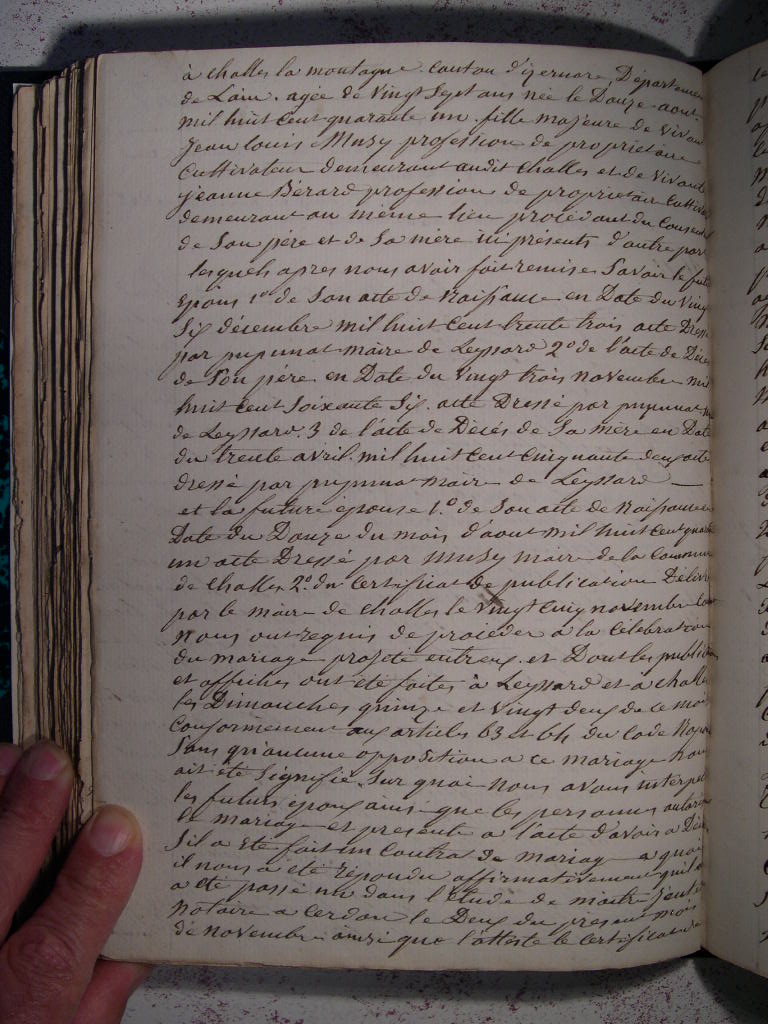 à challes la montagne. canton d'izernore, Départemen
de Lain. agée de vingt sept ans née le Douze aout
mil huit cent quarante un. fille majeure de vivan
jean louis Musy profession de proprietaire
Cultivateur demeurant audit challes et de vivante
jeanne Bérard profession de proprietair cultiv
demeurant au même lieu procédant du consen
de son père et de sa mère ici présents d'autre part
lesquels apres nous avoir fait remise savoir le fut
Epoux 1º de son acte de naissance en Date du vingt
six décembre mil huit cent trente trois acte Dressé
par maire de Leyssard 2º de l'acte de Décès
de son père en Date du vingt trois novembre mil
huit cent soixante six. acte Dressé par
de Leyssard. 3 de l'acte de Décès de sa mère en Date
du trente avril. mil huit cent cinquante deux acte
dressé par maire de Leyssard —
et la future epouse 1.º de son acte de naissance
Date du Douze du mois d'aout mil huit cent quar
un acte Dressé par Musy maire de la Commun
de challes 2.º du certificat De publication Délivr
par le maire de challes le vingt cinq novembre
Nous ont requis de procéder à la célébration
du mariage projeté entreux. et Dont les publica
et affiches ont été faites à Leyssard et à challe
les Dimanches quinze et vingt deux de ce mois
Conformement aux articles 63 et 64 du Code Napo
sans qu'aucune opposition à ce mariage nous
ait été signifie. sur quoi nous avons interpel
les futurs époux ainsi que les personnes autoris
le mariage et presente a l'acte d'avoir a Décl
s'il a été fait un contra de mariage a quoi
il nous a été répondu affirmativement qu'il e
a été passé un dans l'étude de maitre
notaire a Cerdon le Deux du présent mois
de novembre ainsi que l'atteste le certificat